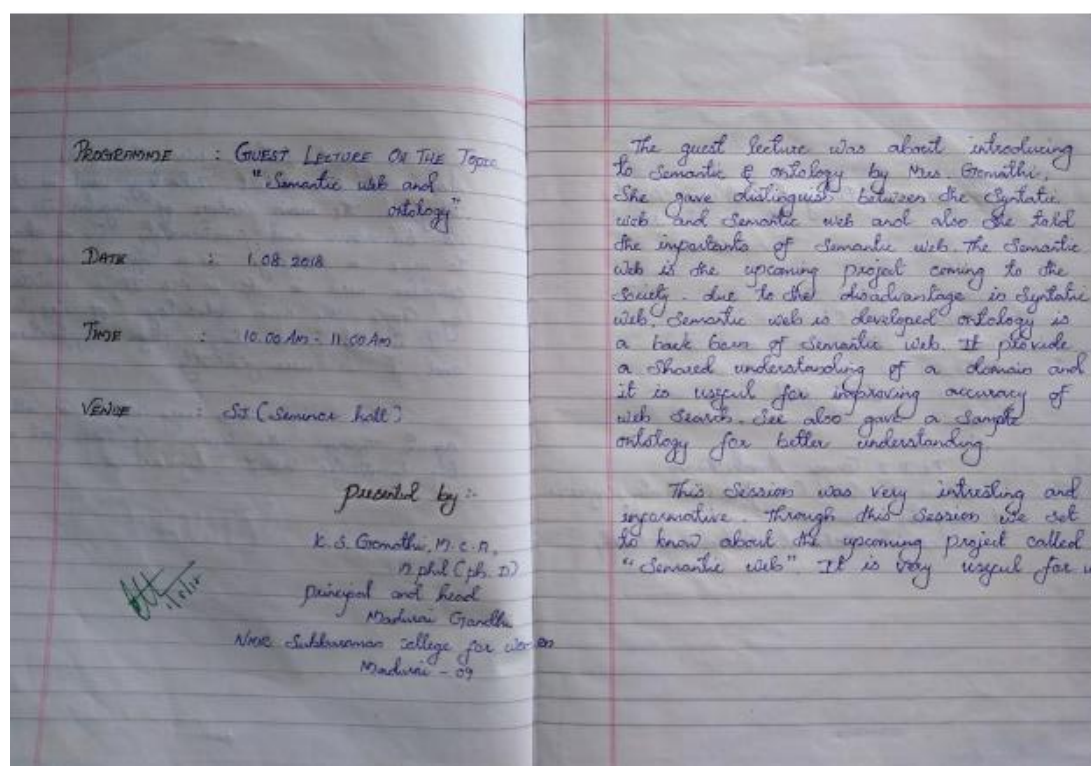 PROGRAMME : GUEST LECTURE ON THE Topic
"Semantic web and
ontology".
DATE : 1.08.2018
TIME : 10.00 Am - 11.00 Am
VENUE : SJ (Seminar hall)
presented by :-
K. S. Gomathi, M.C.A,
M.phil (ph. D)
principal and head
Madurai Gandhi
NMR Subburaman college for women
Madurai - 09
The guest lecture was about introducing
to Semantic & ontology by Mrs. Gomathi.
She gave distinguish between the Syntatic
web and Semantic web and also she told
the importants of Semantic web. The Semantic
Web is the upcoming project coming to the
Society. due to the disadvantage in Syntatic
web, Semantic web is developed ontology is
a back born of Semantic web. It provide
a Shared understanding of a domain and
it is useful for improving accuracy of
web Search. See also gave a Sample
ontology for better understanding.
This Session was very intresting and
informative. Through this Session we get
to know about the upcoming project called
"Semantic web". It is very useful for